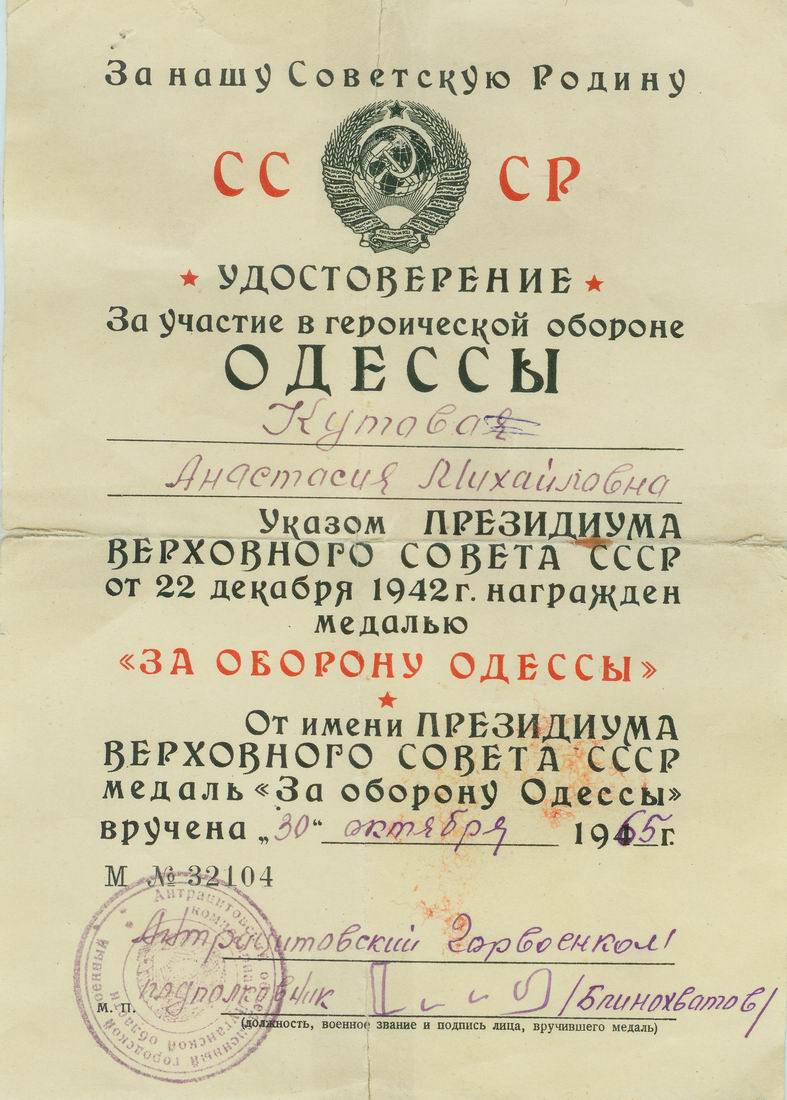 За нашу Советскую Родину
СС СР
УДОСТОВЕРЕНИЕ
За участие в героической обороне
ОДЕССЫ
Кутовая
Анастасия Михайловна
Указом ПРЕЗИДИУМА
ВЕРХОВНОГО СОВЕТА СССР
от 22 декабря 1942 г. награжден
медалью
«ЗА ОБОРОНУ ОДЕССЫ»
От имени ПРЕЗИДИУМА
ВЕРХОВНОГО СОВЕТА СССР
медаль «За оборону Одессы»
вручена „30“ октября 1965 г.
М № 32104
Антрацитовский Горвоенком
подполковник /Блинохватов/
М. П.
(должность, военное звание и подпись лица, вручившего медаль)